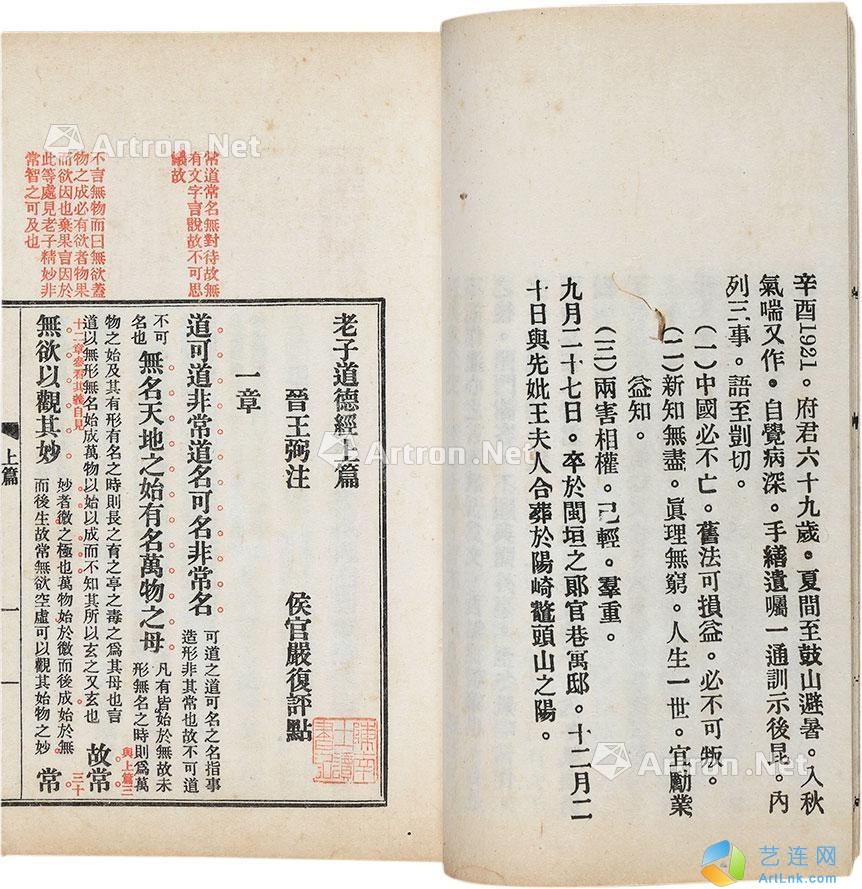 辛酉1921。府君六十九歲。夏間至鼓山避暑。入秋
氣喘又作。自覺病深。手繕遺囑一通訓示後昆。內
列三事。語至剴切。
（一）中國必不亡。舊法可損益。必不可叛。
（二）新知無盡。眞理無窮。人生一世。宜勵業
益知。
（三）兩害相權。己輕。羣重。
九月二十七日。卒於閩垣之郞官巷寓邸。十二月二
十日與先妣王夫人合葬於陽崎鼇頭山之陽。
老子道德經上篇
晉王弼注
侯官嚴復評點
一章
常道常名無對待故無
有文字言說故不可思
議故
道可道非常道名可名非常名
可道之道可名之名指事
造形非其常也故不可道
不可
名也
無名天地之始有名萬物之母
凡有皆始於無故未
形無名之時則爲萬
與上篇三
物之始及其有形有名之時則長之育之亭之毒之爲其母也言
道以無形無名始成萬物以始以成而不知其所以玄之又玄也
故常
三十
十二章參看其義自見
不言無物而曰無欲蓋
物之成必有欲者物果
而欲因也棄果言因於
此等處見老子精妙非
常智之可及也
無欲以觀其妙
妙者微之極也萬物始於微而後成始於無
而後生故常無欲空虛可以觀其始物之妙
常
上篇
一
一
Artron.Net
Artron.Net
Artron.Net
Artron.Net
Artron.Net
艺连网
ArtLnk.com